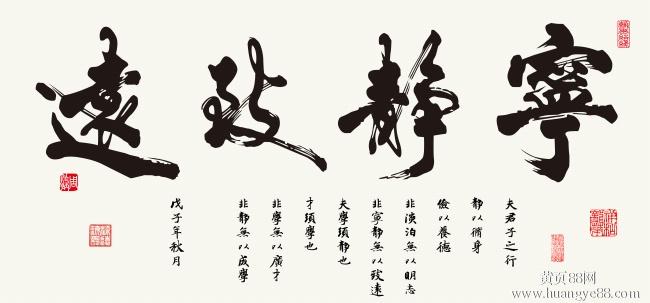 寧靜致遠
夫君子之行
靜以脩身
儉以養德
非淡泊無以明志
非寧靜無以致遠
夫學須靜也
才須學也
非學無以廣才
非靜無以成學
戊子年秋月
黄页88网
www.huangye88.com